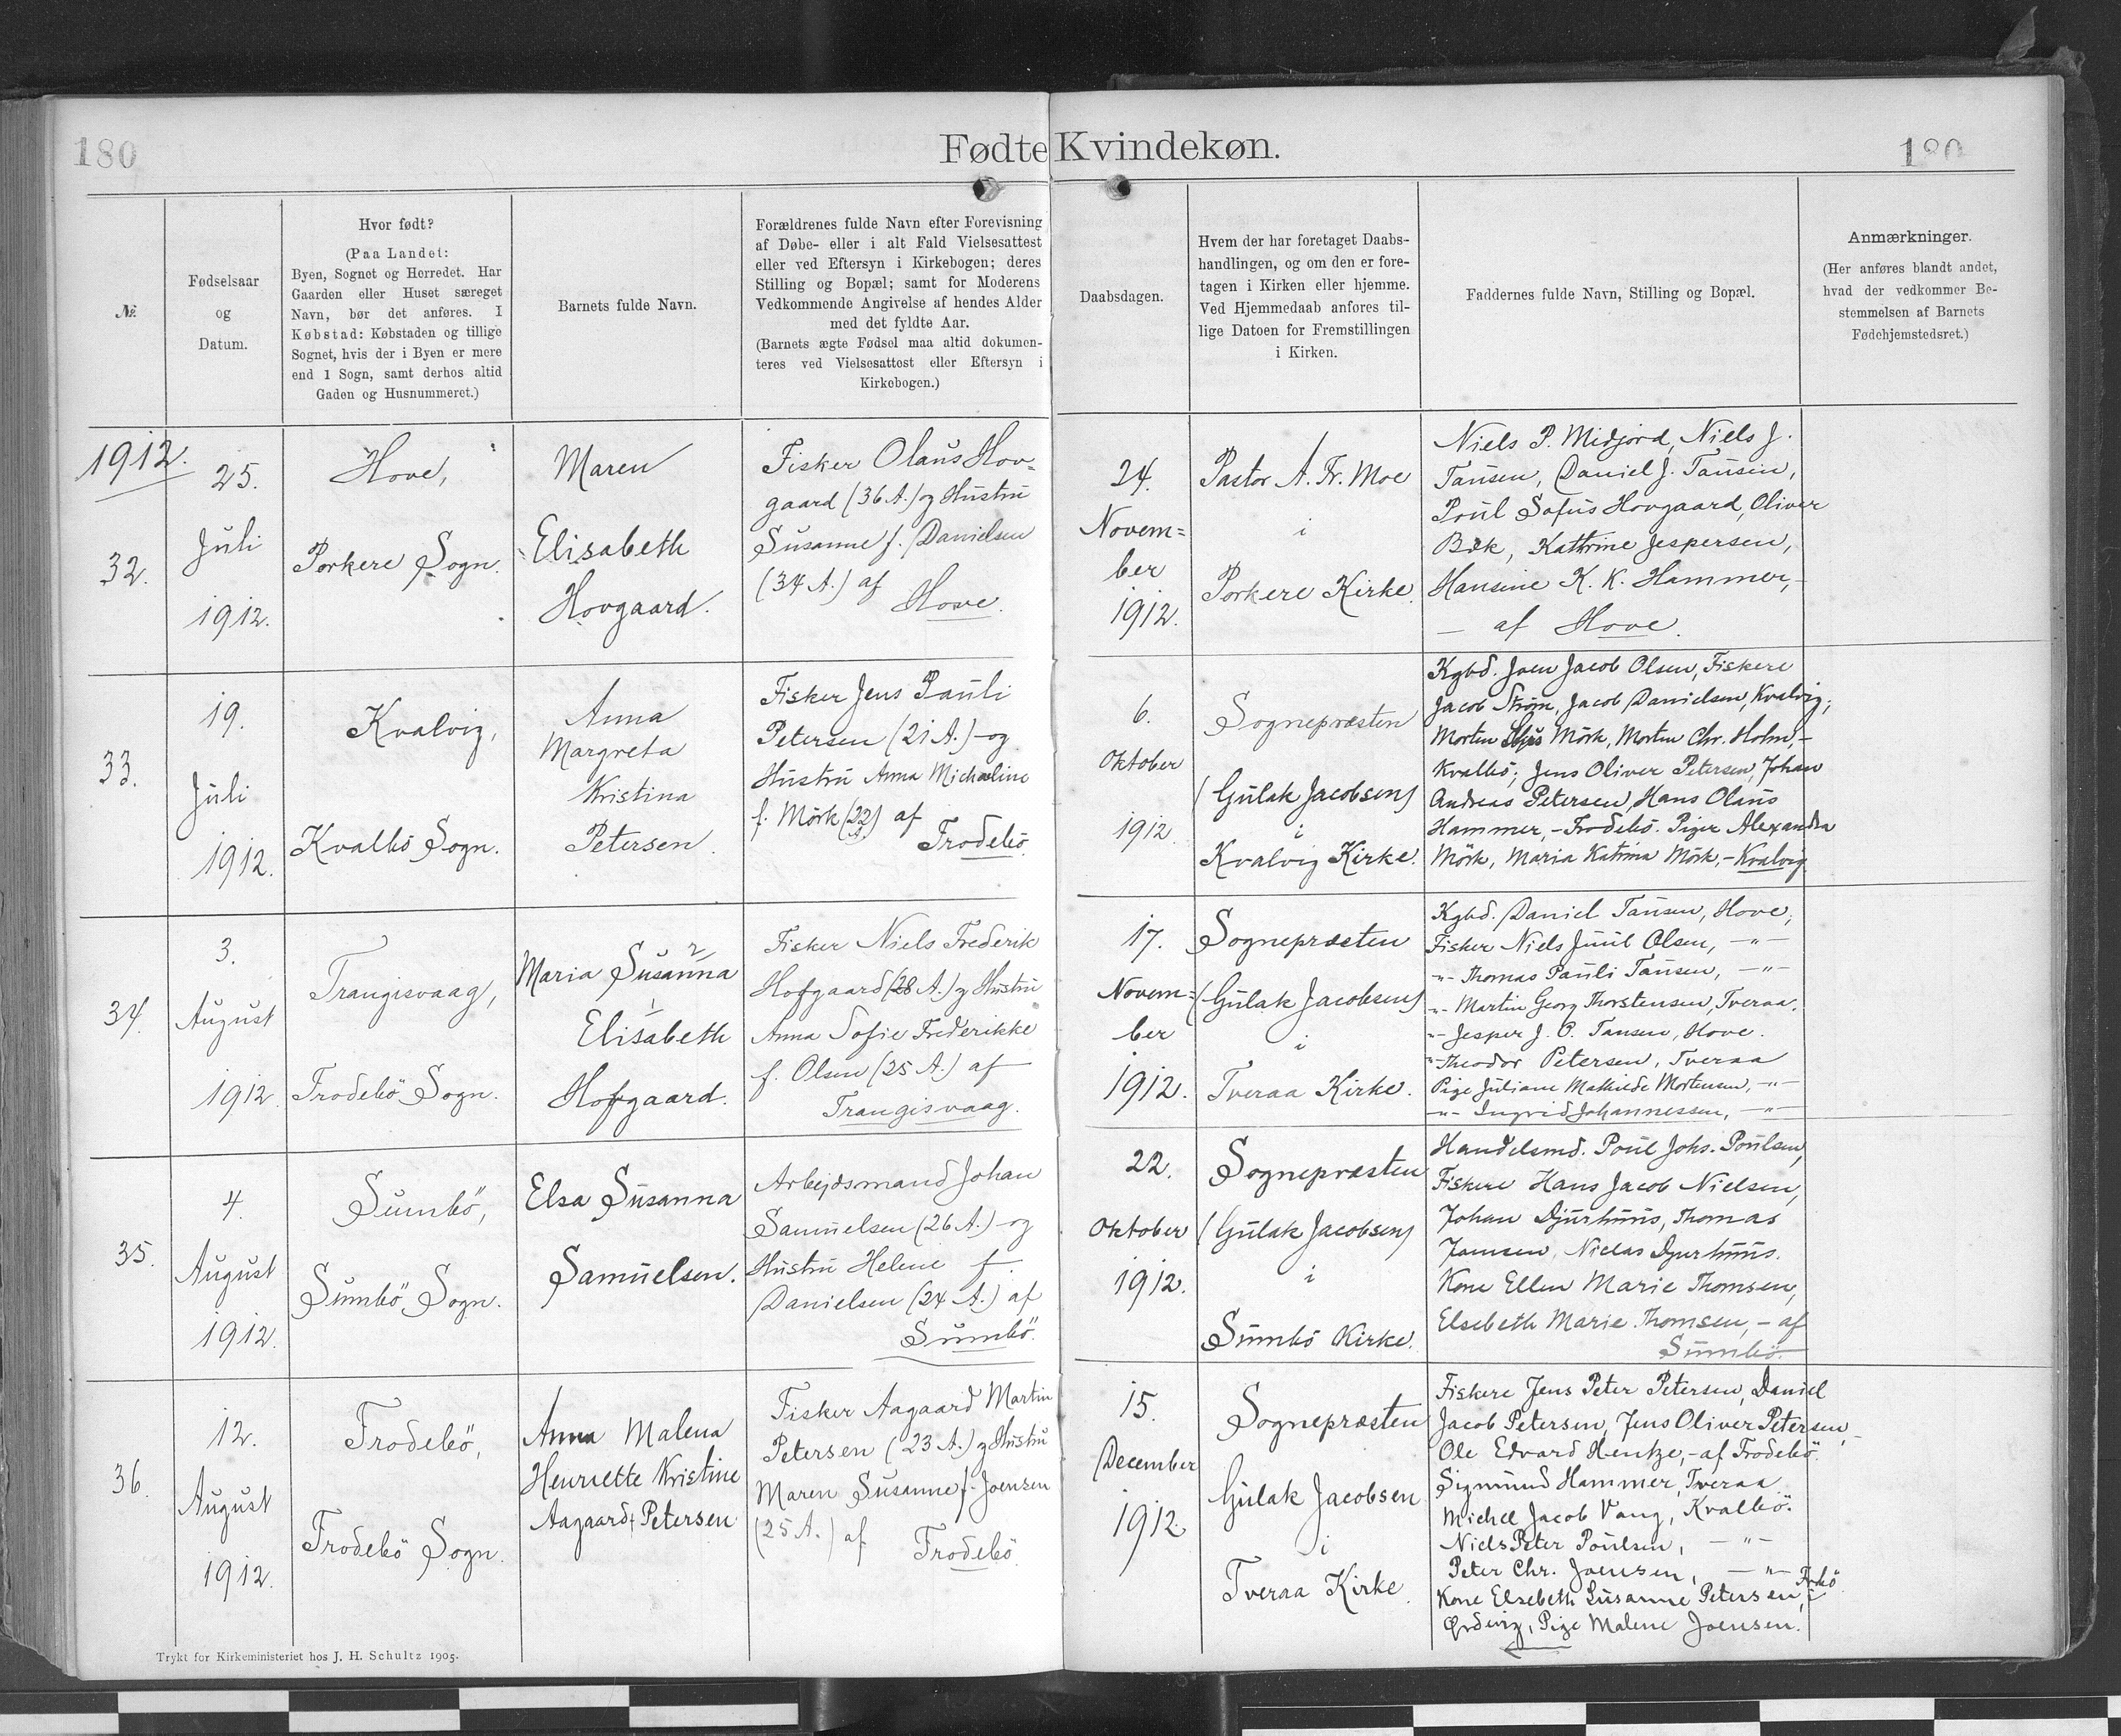 180
Fødte Kvindekøn.
180
№
Fødselsaar
og
Datum.
Hvor født?
(Paa Landet:
Byen, Sognet og Herredet. Har
Gaarden eller Huset særeget
Navn, bør det anføres. I
Købstad: Købstaden og tillige
Sognet, hvis der i Byen er mere
end 1 Sogn, samt derhos altid
Gaden og Husnummeret.)
Barnets fulde Navn.
Forældrenes fulde Navn efter Forevisning
af Døbe- eller i alt Fald Vielsesattest
eller ved Eftersyn i Kirkebogen; deres
Stilling og Bopæl; samt for Moderens
Vedkommende Angivelse af hendes Alder
med det fyldte Aar.
(Barnets ægte Fødsel maa altid dokumen-
teres ved Vielsesattest eller Eftersyn i
Kirkebogen.)
Daabsdagen.
Hvem der har foretaget Daabs-
handlingen, og om den er fore-
tagen i Kirken eller hjemme.
Ved Hjemmedaab anføres til-
lige Datoen for Fremstillingen
i Kirken.
Faddernes fulde Navn, Stilling og Bopæl.
Anmærkninger.
(Her anføres blandt andet,
hvad der vedkommer Be-
stemmelsen af Barnets
Fødehjemstedsret.)
1912.
32.
25.
Juli
1912.
Hove,
Porkere Sogn.
Maren
Elisabeth
Hovgaard.
Fisker Olaus Hov=
gaard (36 A.) og Hustru
Susanne f. Danielsen
(34 A.) af
Hove.
24.
Novem=
ber
1912.
Pastor A. Fr. Moe
i
Porkere Kirke.
Niels P. Midjord, Niels J.
Tausen, Daniel J. Tausen,
Poul Sofus Hovgaard, Oliver
Bæk, Kathrine Jespersen,
Hansine K. K. Hammer,-
- af Hove.
33.
19.
Juli
1912.
Kvalvig,
Kvalbö Sogn.
Anna
Margreta
Kristina
Petersen.
Fisker Jens Pauli
Petersen (21 A.) og
Hustru Anna Michaeline
f. Mörk (22 A) af
Frodebö.
6.
Oktober
1912.
Sognepræsten
(Gulak Jacobsen)
i
Kvalvig Kirke.
Kgbd. Joen Jacob Olsen, Fiskere
Jacob Ström, Jacob Danielsen, Kvalvig;
Morten Mörk, Morten Chr. Holm,-
Kvalbö; Jens Oliver Petersen, Johan
Andreas Petersen, Hans Olaus
Hammer,- Frodebö. Piger Alexandra
Mörk, Maria Katrina Mörk,- Kvalvig.
34.
3.
August
1912
Trangisvaag,
Frodebö Sogn.
2
Maria Susanna
1
Elisabeth
Hofgaard.
Fisker Niels Frederik
Hofgaard (28 A.) og Hustru
Anna Sofie Frederikke
f. Olsen (25 A.) af
Trangisvaag.
17.
Novem=
ber
1912.
Sognepræsten
(Gulak Jacobsen)
i
Tveraa Kirke.
Kgbd. Daniel Tausen, Hove,
Fisker Niels Juul Olsen, -"-
-"- Thomas Pauli Tausen, -"-
-"- Martin Georg Thorstensen, Tveraa.
-"- Jesper J. O. Tausen, Hove.
-"- Theodor Petersen, Tveraa
Pige Juliane Mathilde Mortensen, -"-
-"- Ingrid Johannessen, -"-
35.
4.
August
1912.
Sumbö,
Sumbö Sogn.
Elsa Susanna
Samuelsen.
Arbejdsmand Johan
Samuelsen (26 A.) - og
Hustru Helene f.
Danielsen (24 A.) af
Sumbö.
22.
Oktober
1912.
Sognepræsten
(Gulak Jacobsen)
i
Sumbö Kirke.
Handelsmd. Poul Johs. Poulsen,
Fiskere Hans Jacob Nielsen,
Johan Djurhuus, Thomas
Niclas Djurhuus.
Kone Ellen Marie Thomsen,
Elsebeth Marie Thomsen,- af
Sumbö.
36.
12.
August
1912.
Frodebö,
Frodebö Sogn.
Anna Malena
Henriette Kristine
Aagaard Petersen
Fisker Aagaard Martin
Petersen (23 A.) og Hustru
Maren Susanne f. Joensen
(25 A.) af
Frodebö.
15.
December
1912.
Sognepræsten
Gulak Jacobsen
i
Tveraa Kirke.
Fiskere Jens Peter Petersen, Daniel
Jacob Petersen, Jens Oliver Petersen,
Ole Edvard Hentze,- af Frodebö.
Sigmund Hammer, Tveraa.
Michel Jacob Vang, Kvalbö.
Niels Peter Poulsen, -"-
Peter Chr. Joensen, -"-
Kone Elsebeth Susanne Petersen,
Ørdevig, Pige Malene Joensen.
Trykt for Kirkeministeriet hos J. H. Schultz 1905.